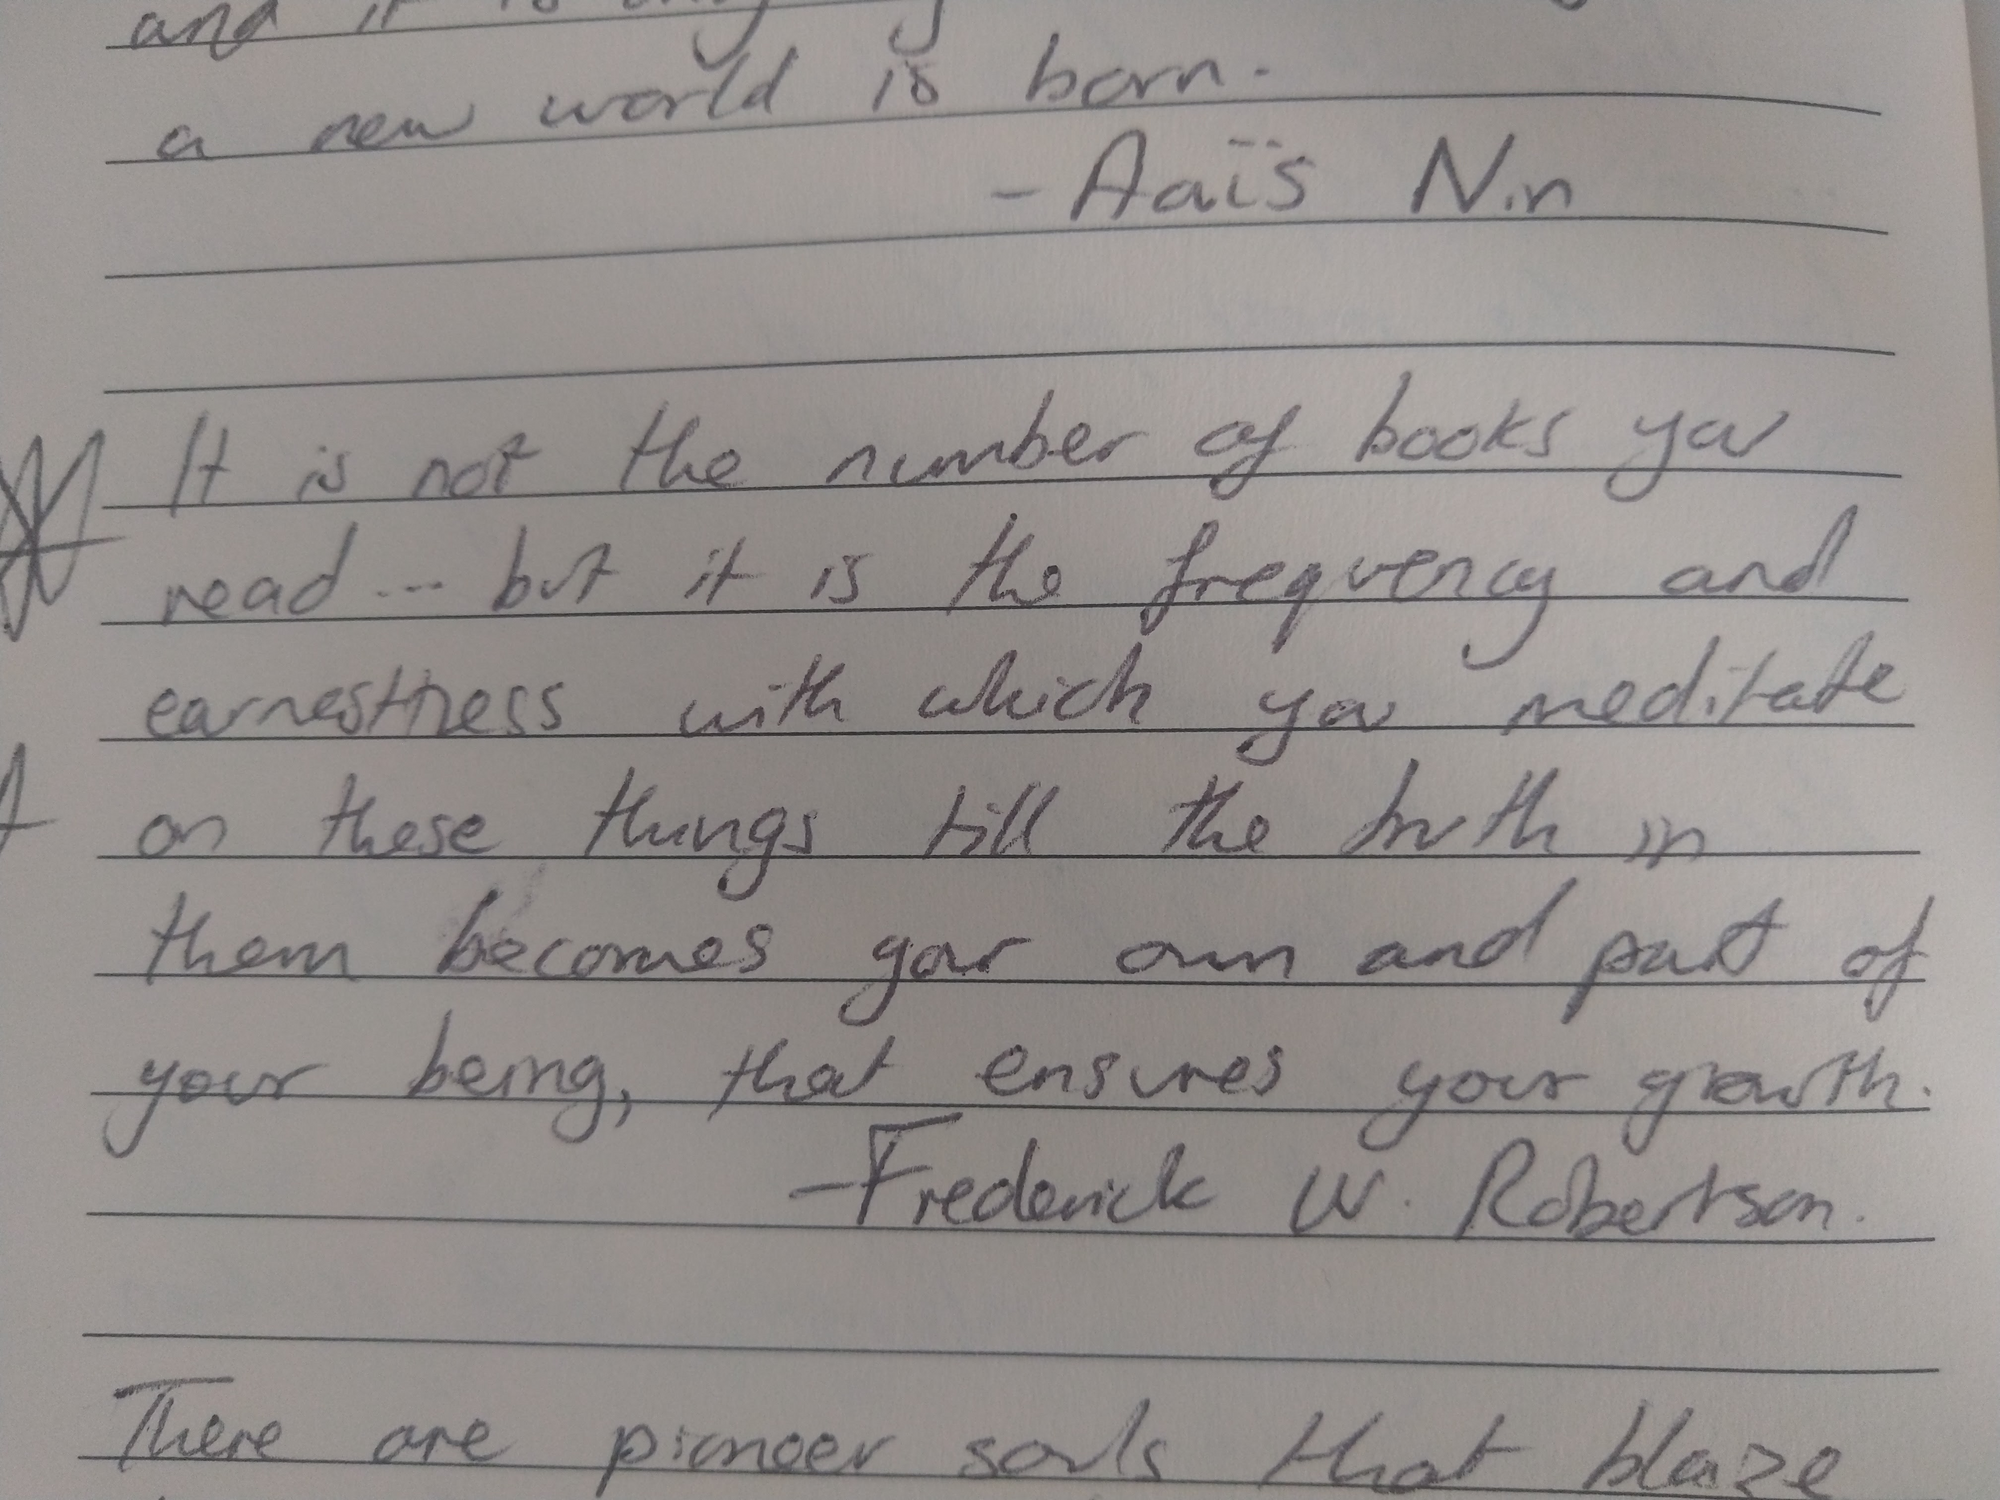 and it is only
a new world is born.
- Aaïs Nin
It is not the number of books you
read... but it is the frequency and
earnestness with which you meditate
on these things till the truth in
them becomes your own and part of
your being, that ensures your growth.
- Frederick W. Robertson.
There are pioneer souls that blaze